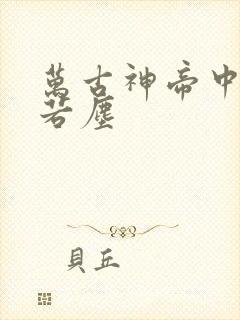 萬古神帝中
若塵
貝丘